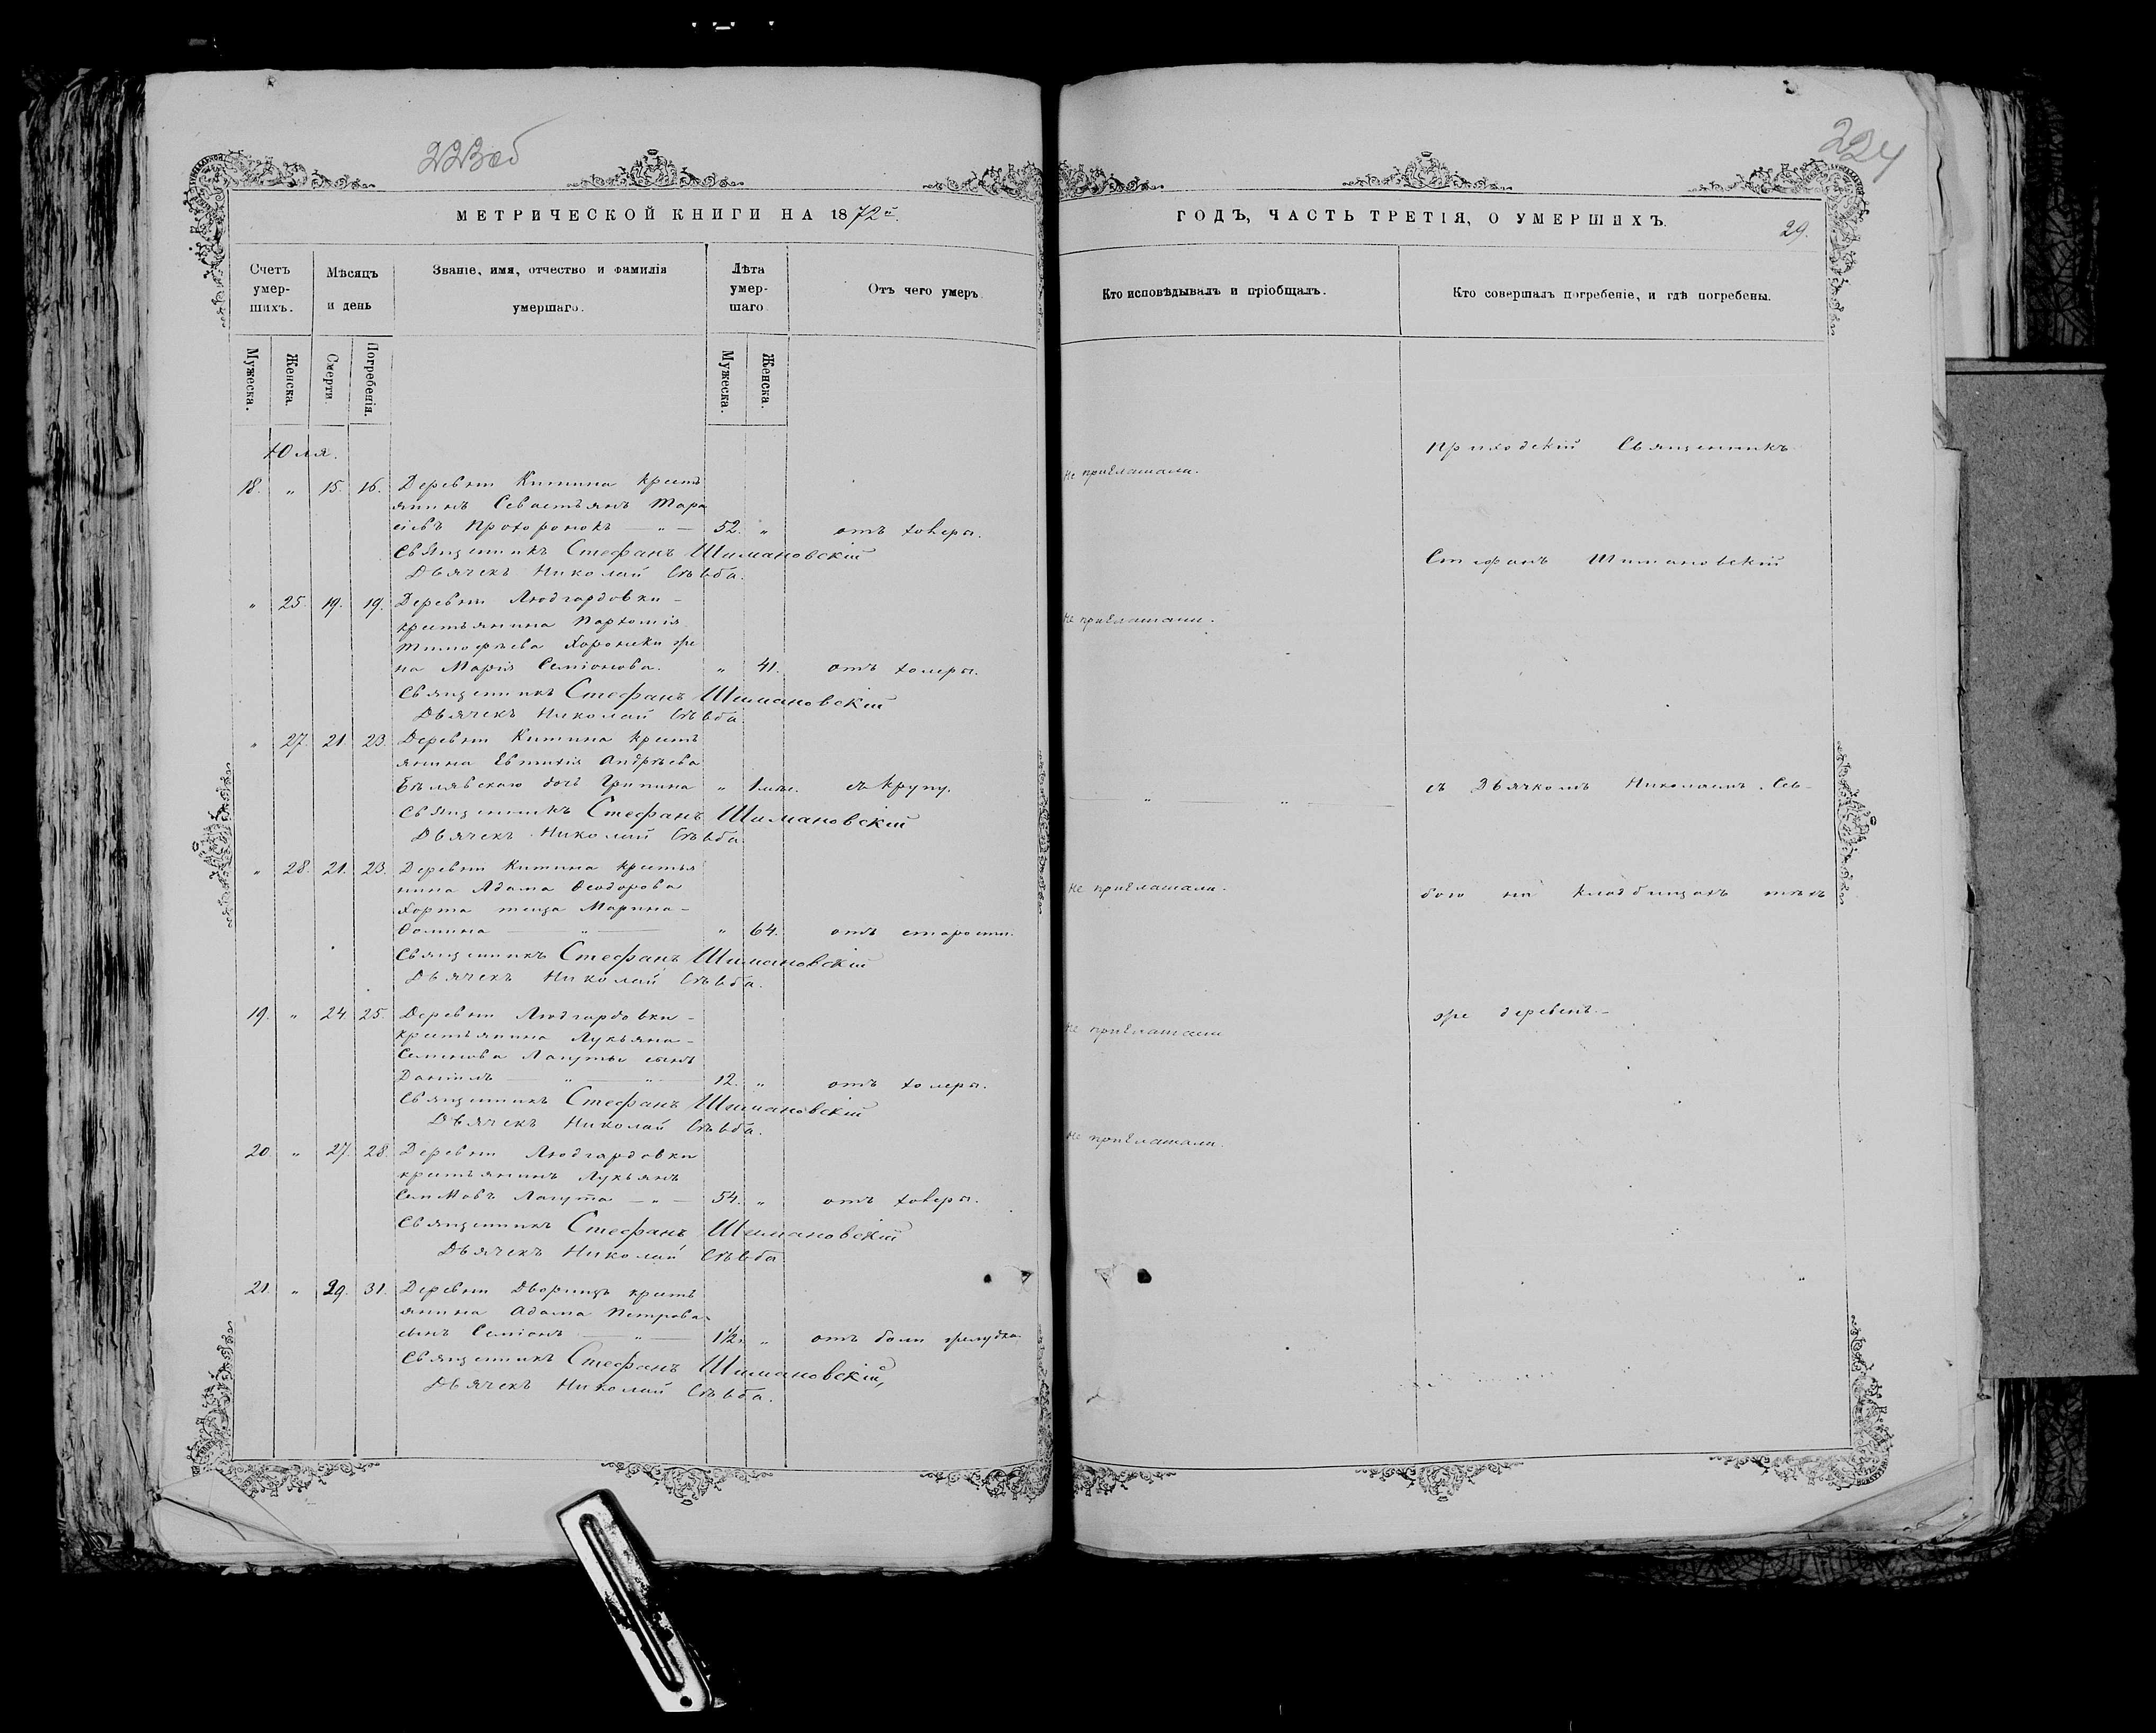 223об
МЕТРИЧЕСКОЙ КНИГИ НА 1872й.
Счетъ умер-шихъ.
Мѣсяцъ и день
Званіе, имя, отчество и фамилія умершаго.
Лѣта умер-шаго
Отъ чего умеръ.
Мужеска.
Женска.
Смерти.
Погребенія.
Мужеска.
Женска.
Юля.
18. " 15. 16. Деревни Китина крест
янинъ Севастьянъ Тара
сіевъ Прохоронокъ — " — 52. " отъ холеры.
Священникъ Стефанъ Шимановскій
Дьячекъ Николай Сѣвба.
" 25. 19. 19. Деревни Людгардовки -
крестьянина Пархомія
Тимофѣева Хоронеки же
на Марія Семіонова. " 41. отъ холеры.
Священникъ Стефанъ Шимановскій
Дьячекъ Николай Сѣвба
" 27. 21. 23. Деревни Китина крест
янина Евтихія Андрѣева
Бѣлявскаго дочь Грипина " 1 отъ крупу.
Священникъ Стефанъ Шимановскій
Дьячекъ Николай Сѣвба
" 28. 21. 23. Деревни Китина крестья
нина Адама Ѳеодорова
Хорта теща Марина -
Фомина — " — " 64. отъ старости.
Священникъ Стефанъ Шимановскій
Дьячекъ Николай Сѣвба.
19. " 24. 25. Деревни Людгардовки -
крестьянина Лукьяна -
Семенова Лагуты сынъ
Даніилъ — " — " — 12. " отъ холеры.
Священникъ Стефанъ Шимановскій
Дьячекъ Николай Сѣвба.
20 " 27. 28. Деревни Людгардовки
крестьянинъ Лукьянъ
Лагута — " — 54. " отъ холеры.
Священникъ Стефанъ Шимановскій
Дьячекъ Николай Сѣвба
21. " 29. 31. Деревни Дворищъ крест
янина Адама Петрова
сынъ Семіонъ — " — 1½ " отъ боли желудка
Священникъ Стефанъ Шимановскій,
Дьячекъ Николай Сѣвба.
224
ГОДЪ, ЧАСТЬ ТРЕТІЯ, О УМЕРШИХЪ.
29.
Кто исповѣдывалъ и пріобщалъ.
Кто совершалъ погребеніе, и гдѣ погребены.
Приходскій Священникъ
Не приглашали.
Стефанъ Шимановскій
Не приглашали.
съ Дьячкомъ Николаемъ Сѣв-
— " — " —
Не приглашали.
бою на кладбищахъ тѣхъ
же деревень. -
Не приглашали
Не приглашали.